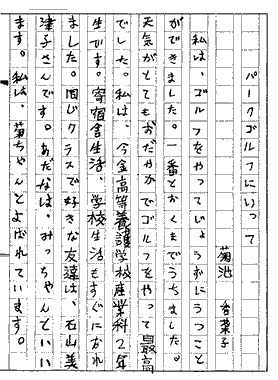 パークゴルフにいって
菊池 香菜子
私は、ゴルフをやってじょうずにうつこと
ができました。一番とおくまでうちました。
天気がとてもおだやかでゴルフをやって最高
でした。私は、今金高等養護学校産業科2年
生です。寄宿舎生活、学校生活もすぐになれ
ました。同じクラスで好きな友達は、石山美
津子さんです。あだなは、みっちゃんといい
ます。私は、菊ちゃんとよばれています。